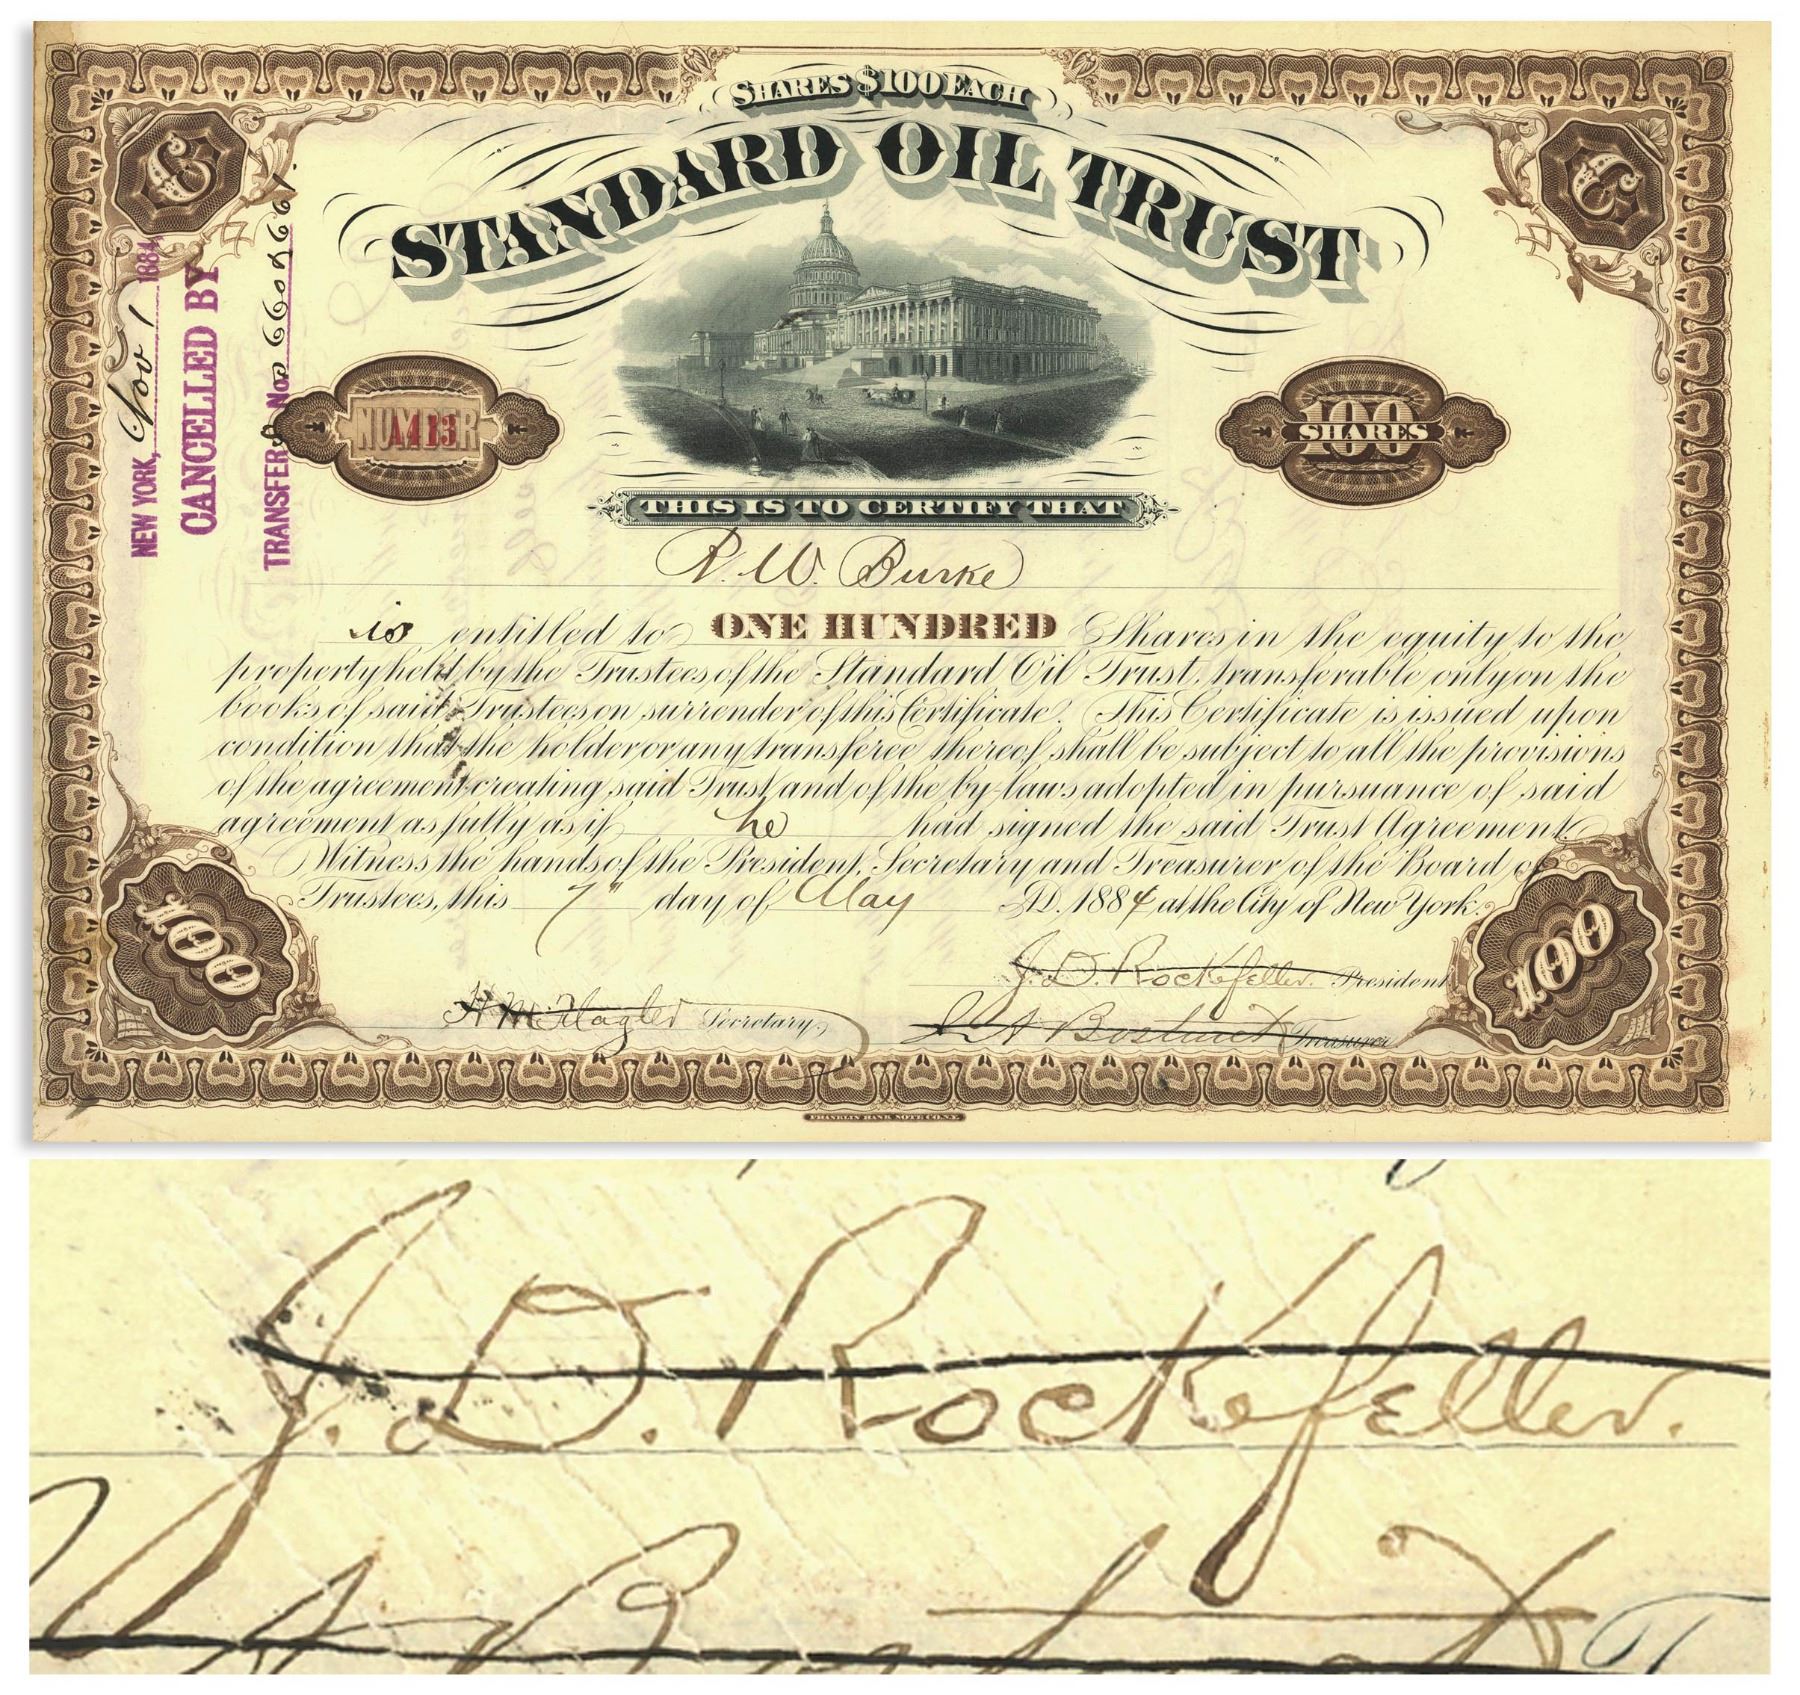 SHARES $100 EACH
STANDARD OIL TRUST
C
C
NEW YORK, Nov 1 1884
CANCELLED BY
TRANSFERS Nos
NUMBER
A413
100
SHARES
THIS IS TO CERTIFY THAT
R. W. Burke
is entitled to ONE HUNDRED Shares in the equity to the
property held by the Trustees of the Standard Oil Trust, transferable only on the
books of said Trustees on surrender of this Certificate. This Certificate is issued upon
condition that the holder or any transferee thereof shall be subject to all the provisions
of the agreement creating said Trust and of the by-laws adopted in pursuance of said
agreement as fully as if he had signed the said Trust Agreement.
Witness the hands of the President, Secretary and Treasurer of the Board of
Trustees, this 7" day of May A.D. 1884 at the City of New York.
100
100
J. D. Rockefeller. President
H M Flagler Secretary.
J A Bostwick Treasurer
FRANKLIN BANK NOTE CO. N.Y.
J. D. Rockefeller.